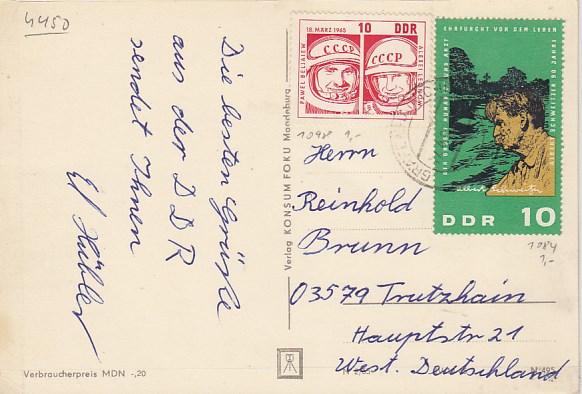 4450
Die besten Grüße
aus der DDR
sendet Ihnen
Verbraucherpreis MDN -,20
Verlag KONSUM FOKU Magdeburg
18. MÄRZ 1965 10 DDR
PAWEL BELJAJEW
CCCP CCCP
ALEXEJ LEONOW
DER GROSSE HUMANIST UND ARZT
EHRFURCHT VOR DEM LEBEN
ALBERT SCHWEITZER 90 JAHRE
Albert Schweitzer
DDR 10
1098 1,-
1084
1,-
Herrn
Reinhold
Brunn
03579 Trutzhain
Hauptstr 21
West. Deutschland